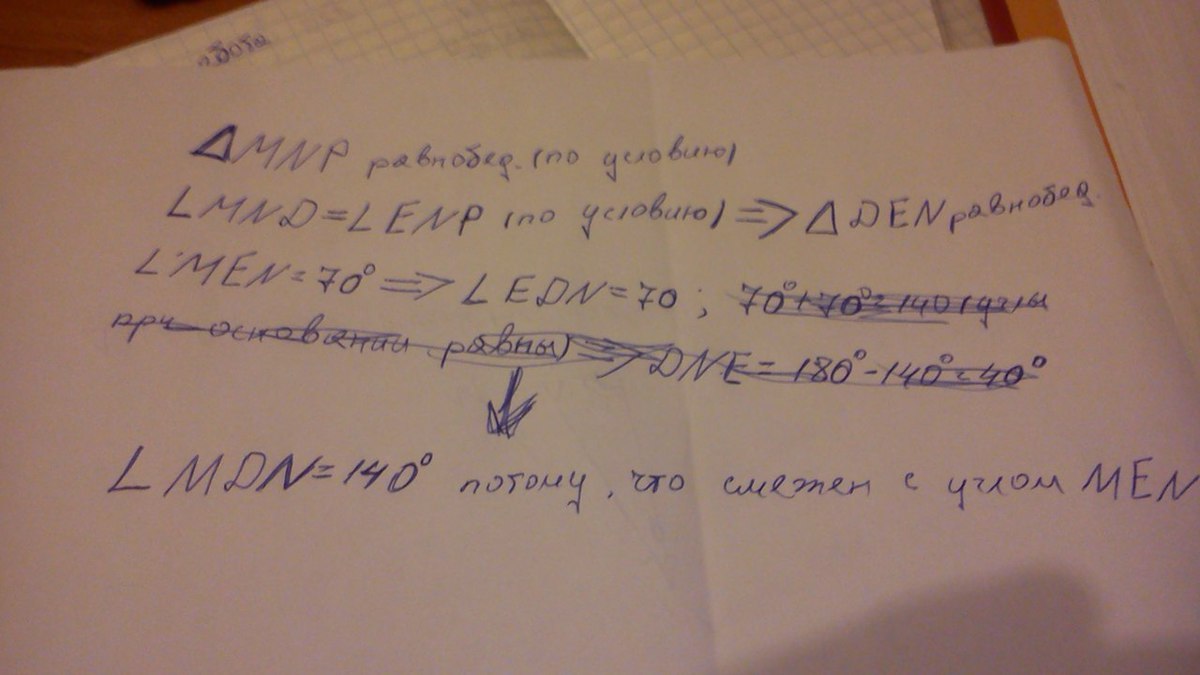 △MNP равнобед. (по условию)
∠MND=∠ENP (по условию) => △DEN равнобед.
∠MEN=70° => ∠EDN=70 ; 70°+70°=140 (углы
при основании равны) => DNE=180°-140°=40°
∠MDN=140° потому, что смежен с углом MEN